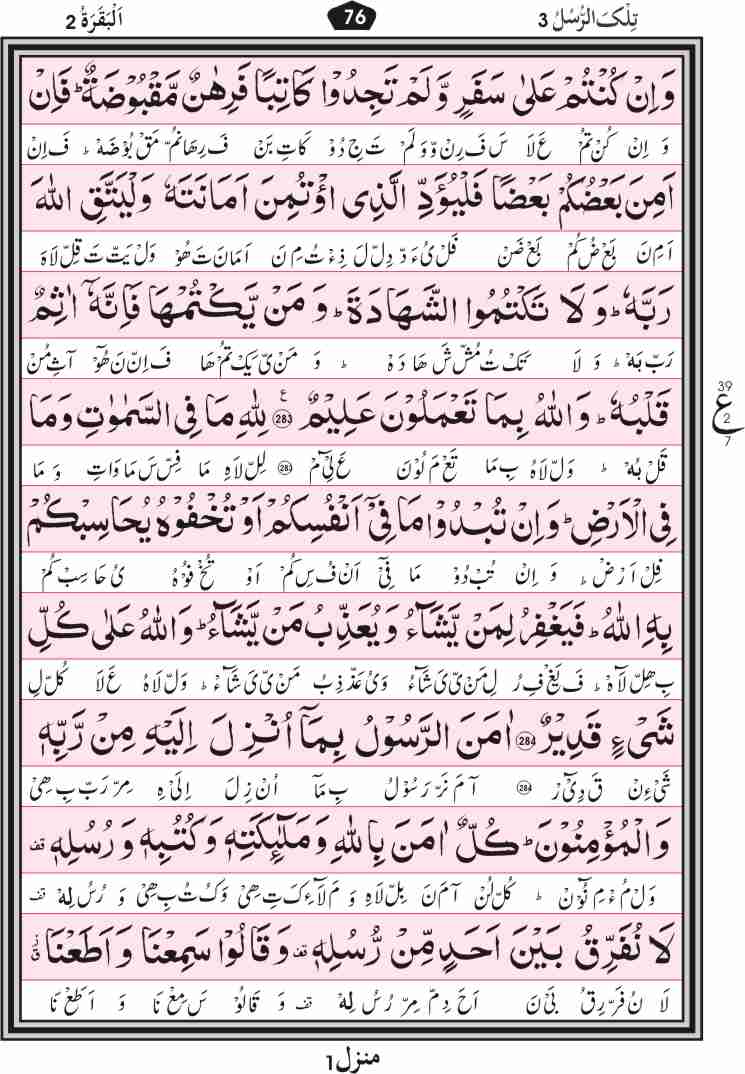 تِلْکَ الرُّسُلُ 3
76
اَلْبَقَرَةُ 2
وَاِنْ كُنْتُمْ عَلٰى سَفَرٍ وَّلَمْ تَجِدُوْا كَاتِبًا فَرِهٰنٌ مَّقْبُوْضَةٌ ؕ فَاِنْ
وَ اِنْ كُنْ تُمْ عَ لَا سَ فَ رِنْ وَّ وَ لَمْ تَ جِ دُوْ كَاتِ بَنْ فَ رِ هَا نُمْ مَّقْ بُوْضَهْ ؕ فَ اِنْ
اَمِنَ بَعْضُكُمْ بَعْضًا فَلْيُؤَدِّ الَّذِى اؤْتُمِنَ اَمَانَتَهٗ وَلْيَتَّقِ اللّٰهَ
اَمِ نَ بَعْ ضُ كُمْ بَعْ ضَنْ فَلْ يُ ءَ دّ دِلّ لَ ذِءْ تُ مِ نَ اَمَانَ تَ هُوْ وَلْ يَتّ تَ قِلّ لَاهَ
رَبَّهٗ ؕ وَلَا تَكْتُمُوا الشَّهَادَةَ ؕ وَمَنْ يَّكْتُمْهَا فَاِنَّهٗۤ اٰثِمٌ
رَبّ بَهْ ؕ وَ لَا تَكْ تُ مُشّ شَ هَادَهْ ؕ وَ مَنْ ىّ يَكْ تُمْ هَا فَ اِنّ نَ هُوْۤ آثِ مُنْ
قَلْبُهٗ ؕ وَاللّٰهُ بِمَا تَعْمَلُوْنَ عَلِيْمٌ ع 283 لِلّٰهِ مَا فِى السَّمٰوٰتِ وَمَا
39
ع
2
7
قَلْ بُهْ ؕ وَلّ لَاهُ بِمَا تَعْ مَ لُوْنَ عَ لِىْٓ مْ 283 لِلّ لَاهِ مَا فِسّ سَ مَاوَاتِ وَ مَا
فِى الْاَرْضِ ؕ وَاِنْ تُبْدُوْا مَا فِىْۤ اَنْفُسِكُمْ اَوْ تُخْفُوْهُ يُحَاسِبْكُمْ
فِلْ اَرْضْ ؕ وَ اِنْ تُبْ دُوْ مَا فِىْۤ اَنْ فُ سِ كُمْ اَوْ تُخْ فُوْهُ ىُ حَاسِبْ كُمْ
بِهِ اللّٰهُ ؕ فَيَغْفِرُ لِمَنْ يَّشَآءُ وَيُعَذِّبُ مَنْ يَّشَآءُ ؕ وَاللّٰهُ عَلٰى كُلِّ
بِ هِلّ لَاهْ ؕ فَ يَغْ فِ رُ لِ مَنْ ىّ ىَ شَآءُ وَىُ عَذّ ذِبُ مَنْ ىّ ىَ شَآءْ ؕ وَلّ لَاهُ عَ لَا كُلّ لِ
شَىْءٍ قَدِيْرٌ 284 اٰمَنَ الرَّسُوْلُ بِمَاۤ اُنْزِلَ اِلَيْهِ مِنْ رَّبِّهٖ
شَىْءِنْ قَ دِىْٓ رْ 284 آمَ نَرّ رَسُوْلُ بِ مَآ اُنْ زِلَ اِلَىْ هِ مِرّ رَبّ بِ هِىْ
وَالْمُؤْمِنُوْنَ ؕ كُلٌّ اٰمَنَ بِاللّٰهِ وَمَلٰٓئِكَتِهٖ وَكُتُبِهٖ وَرُسُلِهٖ قف
وَلْ مُءْ مِ نُوْٓنْ ؕ كُلّ لُنْ آمَ نَ بِلّ لَاهِ وَ مَ لَآءِكَ تِ هِىْ وَ كُ تُ بِ هِىْ وَ رُ سُ لِهْ قف
لَا نُفَرِّقُ بَيْنَ اَحَدٍ مِّنْ رُّسُلِهٖ قف وَقَالُوْا سَمِعْنَا وَاَطَعْنَا
لَا نُ فَرّ رِقُ بَىْ نَ اَحَ دِمْ مِرّ رُ سُ لِهْ قف وَ قَالُوْ سَ مِعْ نَا وَ اَ طَعْ نَا
منزل 1